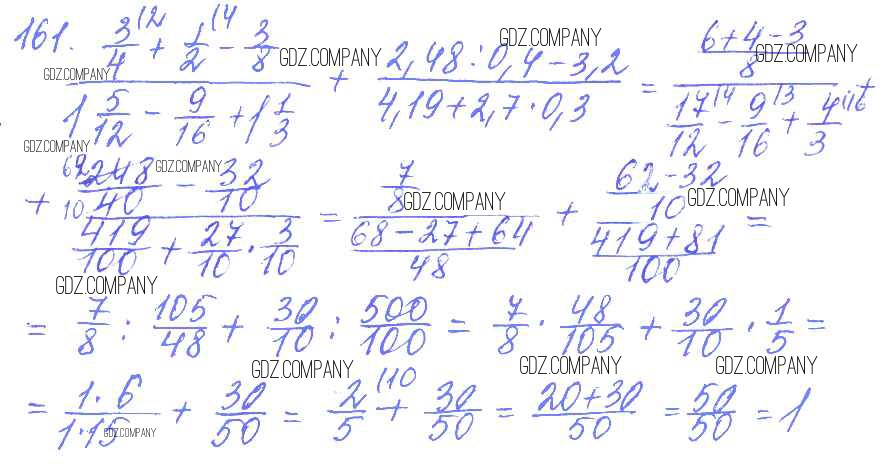 161. (3/4 + 1/2 - 3/8) / (1 5/12 - 9/16 + 1 1/3) + (2,48 : 0,4 - 3,2) / (4,19 + 2,7 · 0,3) = ((6+4-3)/8) / (17/12 - 9/16 + 4/3) +
+ (248/40 - 32/10) / (419/100 + 27/10 · 3/10) = (7/8) / ((68-27+64)/48) + ((62-32)/10) / ((419+81)/100) =
= 7/8 : 105/48 + 30/10 : 500/100 = 7/8 · 48/105 + 30/10 · 1/5 =
= (1·6)/(1·15) + 30/50 = 2/5 + 30/50 = (20+30)/50 = 50/50 = 1
GDZ.COMPANY
GDZ.COMPANY
GDZ.COMPANY
GDZ.COMPANY
GDZ.COMPANY
GDZ.COMPANY
GDZ.COMPANY
GDZ.COMPANY
GDZ.COMPANY
GDZ.COMPANY
GDZ.COMPANY
GDZ.COMPANY
GDZ.COMPANY